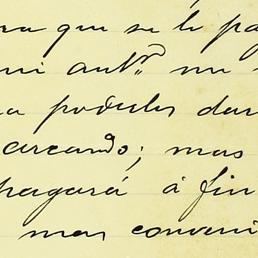 ra que se le pag
mi antr. me
a poderles dar
arcando; mas
pagará á fin
mas conveni